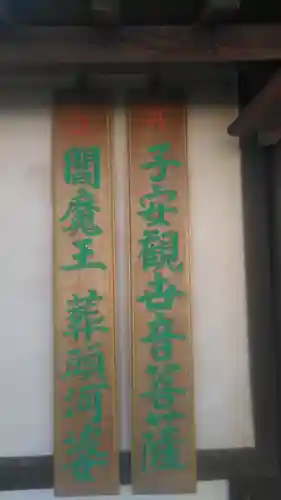 子安觀世音菩薩
閻魔王 葬頭河婆